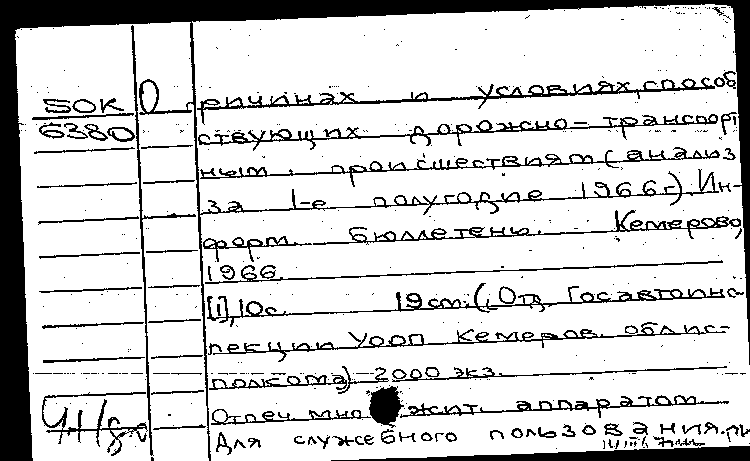 БОК О причинах и условиях, способ
6380 ствующих дорожно-транспорт
ным происшествиям (анализ
за 1-е полугодие 1966г.). Ин-
форм. бюллетень. Кемерово,
1966.
[1], 10с. 19см. (Отд. Госавтоинс
пекции УООП Кемеров. облис-
полкома) 2000 экз.
Отпеч. множит. аппаратом
Для служебного пользования.